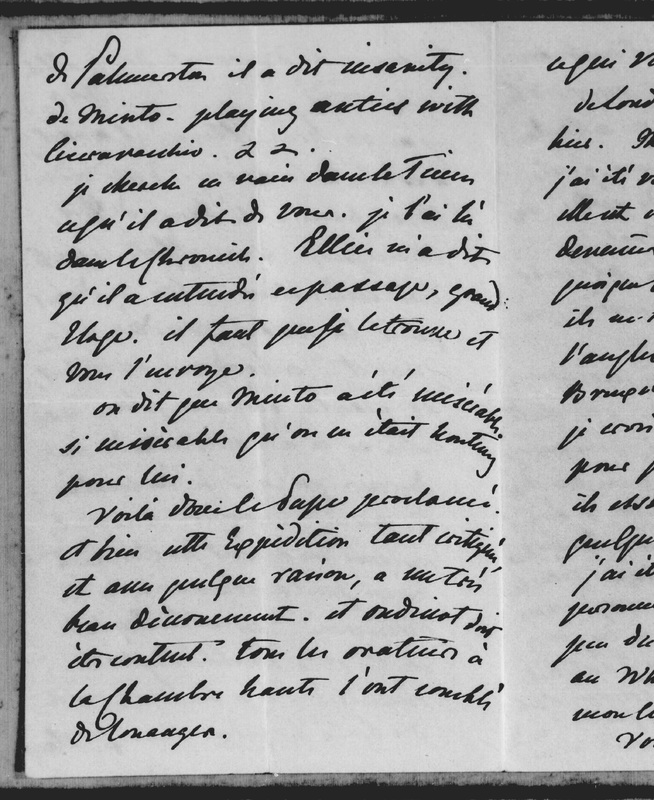 de Palmerston il a dit insanity.
de Minto - playing antics with
Ciceruacchio. 2 2.
je cherche en vain dans le Times
ce qu'il a dit de vous. je l'ai lu
dans le Chronicle. Ellice m'a dit
qu'il a entendu ce passage, grand
Eloge. il faut que je le trouve et
vous l'envoye.
on dit que Minto a été misérable.
si misérable qu'on en était honteux
pour lui.
Voilà donc le Pape proclamé.
et bien cette Expédition tant critiquée
et avec quelque raison, a un très
beau dénouement. et Oudinot doit
être content. tous les orateurs à
la Chambre haute l'ont comblé
de louanges.
ce qui
de Lond
hier.
j'ai été
pour
quelque
j'ai
personne
au
mon